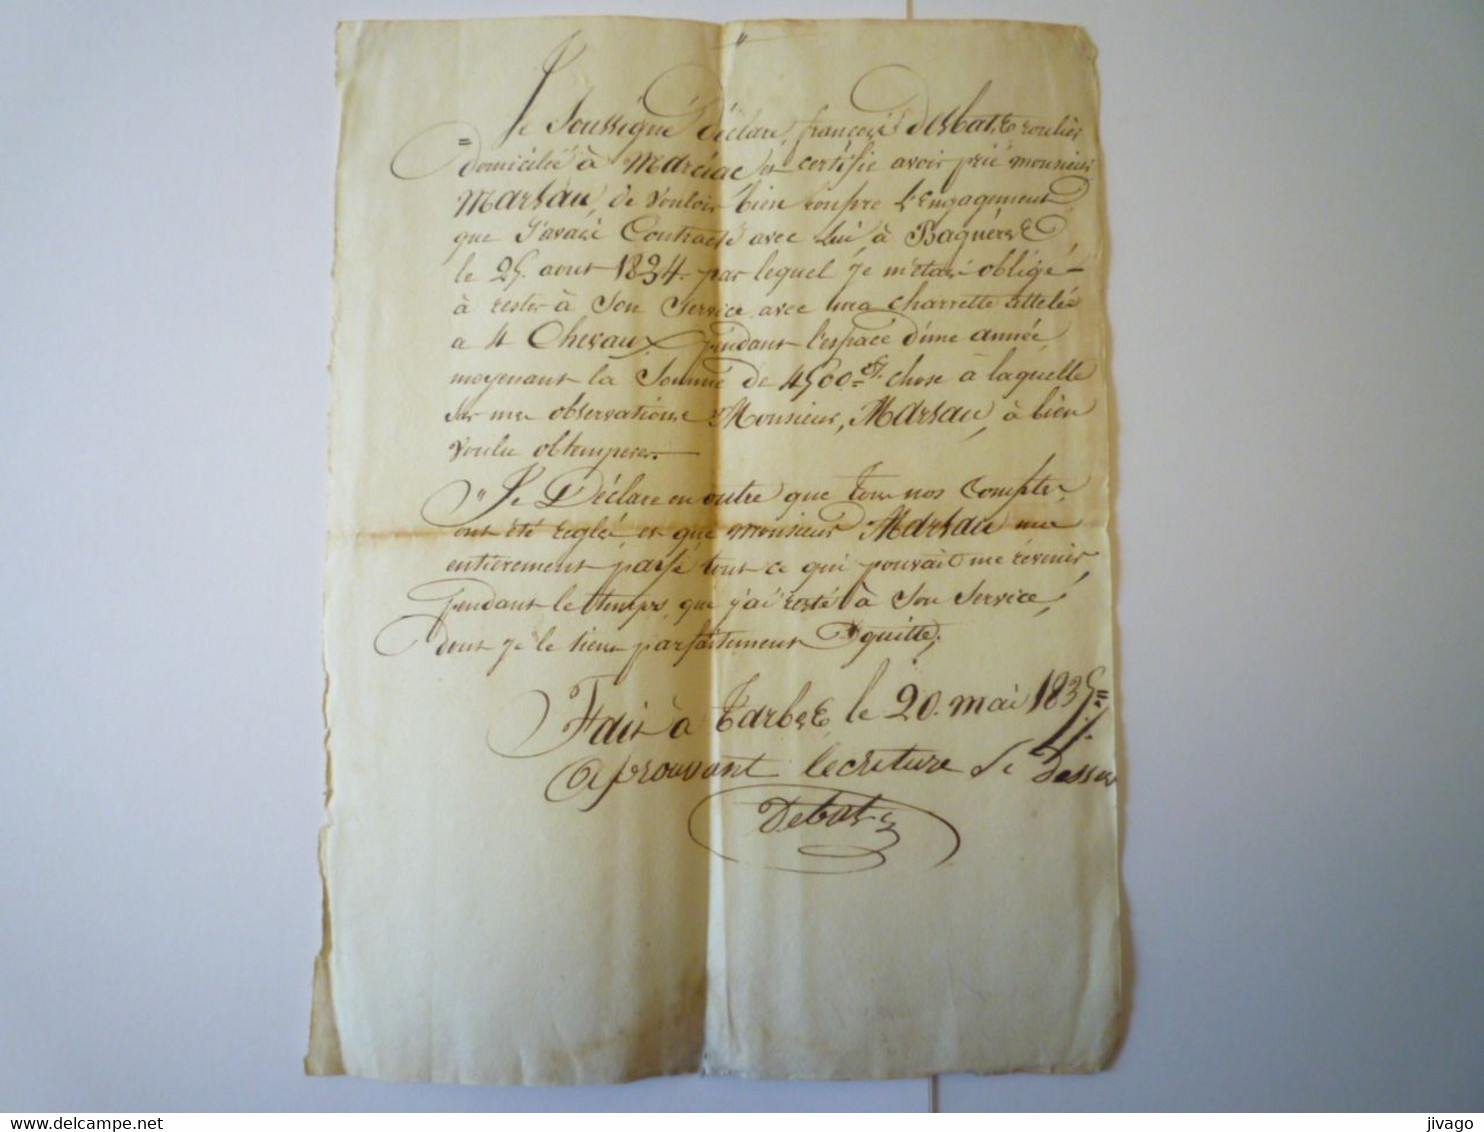 Je Soussigné Déclare, françois Desbats, roulier
domicilié à Marciac et certifie avoir prié monsieur
Marsau, de vouloir bien rompre l'Engagement
que J'avais Contracté avec Lui, à Bagnères,
le 25. aout 1834. par lequel je m'étais obligé
à rester à Son Service avec ma charrette attelée
a 4 Chevaux, pendant l'espace d'une année,
moyenant la Somme de 4500 = f. chose à laquelle
sur mes observations Monsieur, Marsau, à bien
voulu obtemperer. —
" Je Déclare en outre que tous nos Comptes,
ont été reglés, et que monsieur Marsau m'a
entièrement payé tout ce qui pouvait me révenir,
pendant le temps que j'ai resté à Son Service,
dont je le tiens parfaitement quitte;
Fait à Tarbes le 20. mai 1835 =
aprouvant lecriture de Dessus
Debats
jivago
delcampe.net